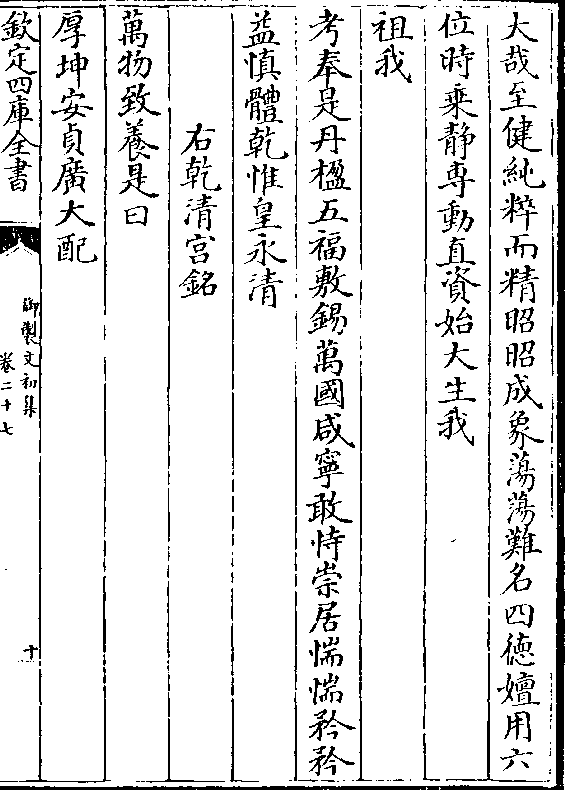 大哉至健純粹而精昭昭成象蕩蕩難名四德嬗用六
位時乗静専動直資始大生我
祖我
考奉是丹楹五福敷錫萬國咸寧敢恃崇居惴惴矜矜
益慎體乾惟皇永清
右乾清宮銘
萬物致養是曰
厚坤安貞廣大配
欽定四庫全書
御製文初集
卷二十七
十